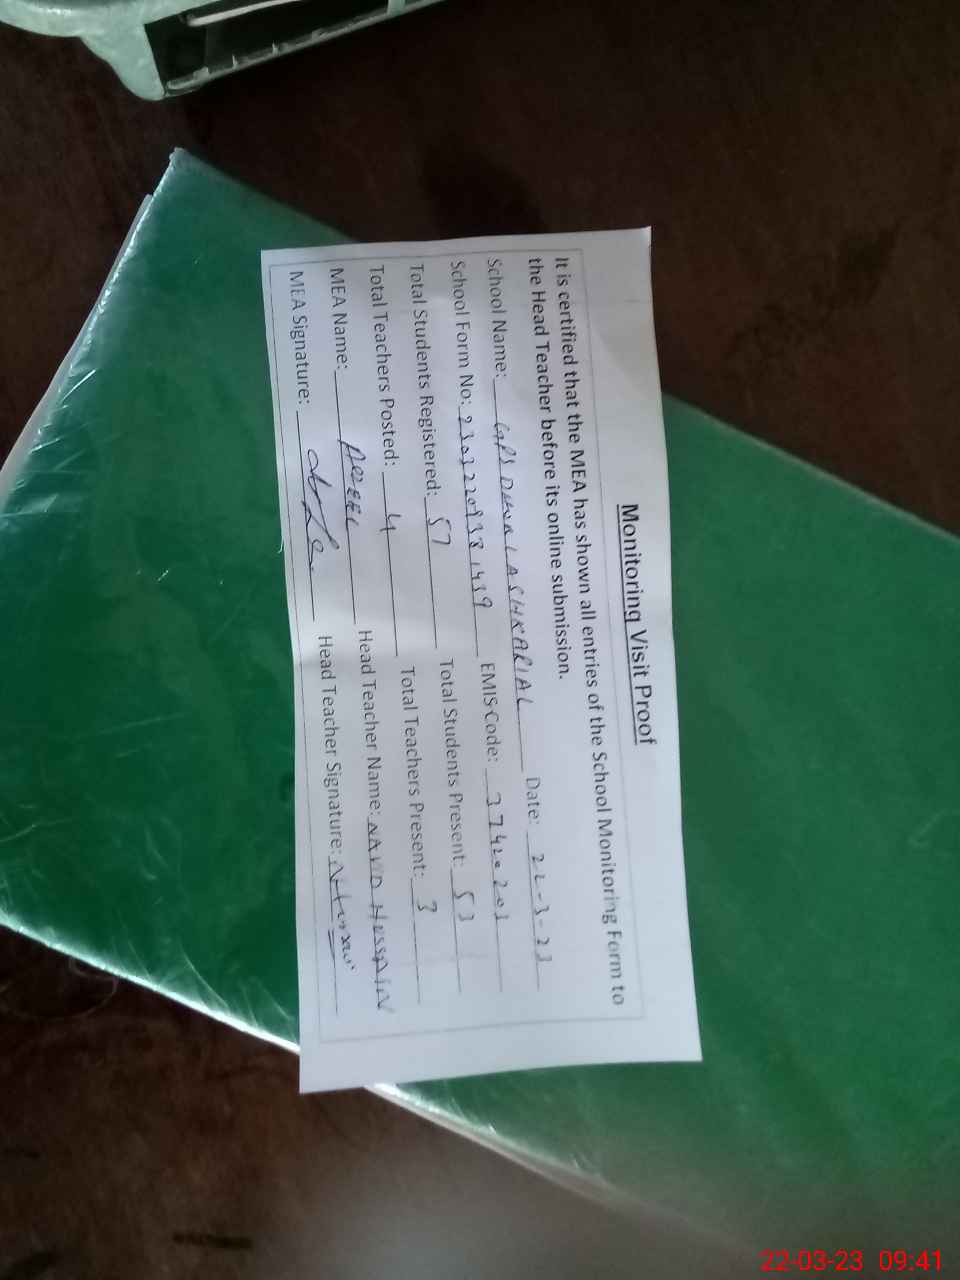 Monitoring Visit Proof
It is certified that the MEA has shown all entries of the School Monitoring Form to
the Head Teacher before its online submission.
School Name: GGPS LASHKARIAL Date: 22-3-23
School Form No: EMIS Code: 37420203
Total Students Registered: 57 Total Students Present: 53
Total Teachers Posted: 4 Total Teachers Present: 3
MEA Name: Head Teacher Name: NAVID HUSSAIN
MEA Signature: Head Teacher Signature:
22-03-23 09:41